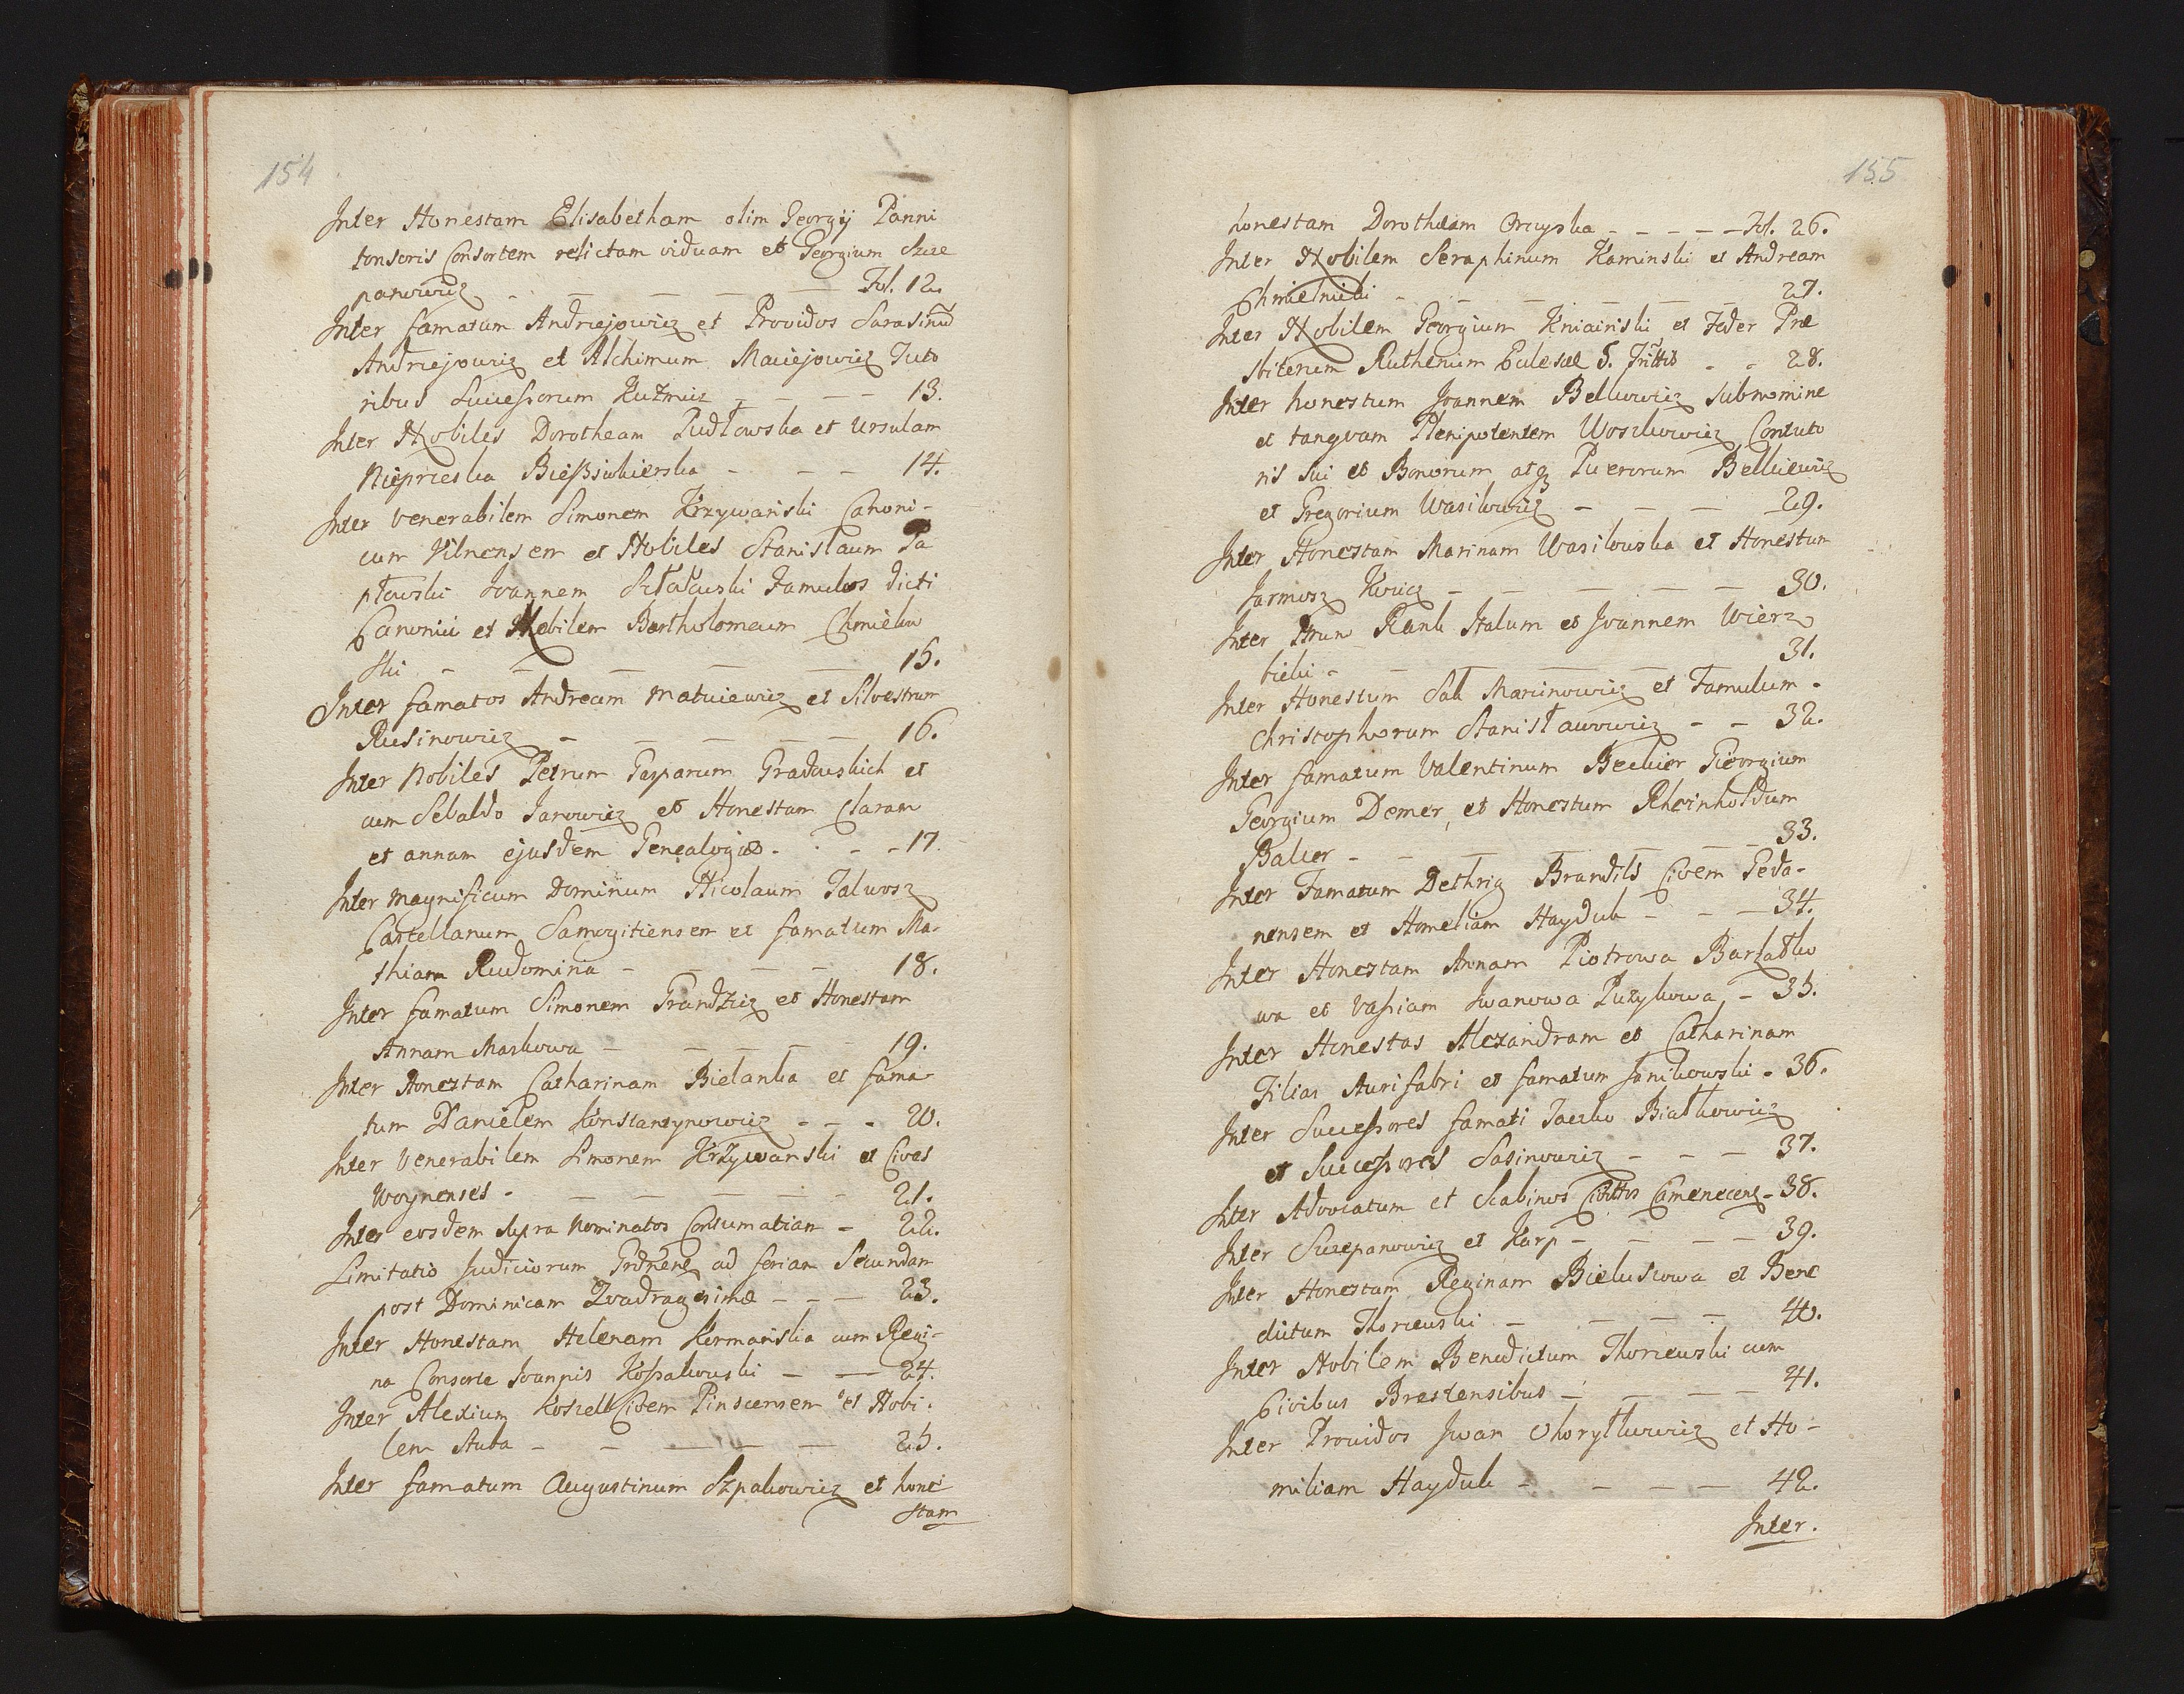 154
Inter Honestam Elisabetham olim Georgij Panni
tonsoris Consortem relictam viduam et Georgium Szcze
panowicz - - - - - Fol. 12.
Inter famatum Andrzejowicz et Providos
Andrzejowicz et Alchimum Maciejowicz Tuto
ribus Successorum Kuźmicz - - - - 13.
Inter Nobiles Dorotheam Pudłowska et Ursulam
- - - 14.
Inter Venerabilem Simonem Krzywański Canoni-
cum Vilnensem et Nobiles Stanislaum Pa
płowski Joannem famulos dicti
Canonici et Nobilem Bartholomeum Chmielow
ski - - - - - 15.
Inter famatos Andream Matuiewicz et Silvestrum
Rusinowicz - - - - - 16.
Inter Nobiles Petrum Gasparum Gradowskich et
cum Sebaldo Jarowicz et Honestam Claram
et annam ejusdem Genealogiæ - - - - 17.
Inter Magnificum Dominum Nicolaum Talwosz
Castellanum Samogitiensem et famatum Ma-
thiam Rudomina - - - - 18.
Inter famatum Simonem Grandzicz et Honestam
Annam Maskowa - - - - - 19.
Inter Honestam Catharinam Bielanka et fama
tum Danielem Konstantynowicz - - - 20.
Inter Venerabilem Simonem Krzywanski et Cives
Woynenses - - - - - - 21.
Inter eosdem supra Nominatos Contumatiam - 22.
Limitatio Judiciorum Grdnens ad feriam Secundam
post Dominicam Quadragesimæ - - - 23.
Inter Honestam Helenam Kormańska cum Regi-
na Consorte Joannis Kossakowski - - 24.
Inter Alexium Koziell Civem Pinscensem et Nobi-
lem Auba - - - - - 25.
Inter famatum Augustinum Szpakowicz et hone
stam
155
honestam Dorotheam - - - - - Fol. 26.
Inter Nobilem Seraphinum Kaminski et Andream
Chmielnicki - - - - - - 27.
Inter Nobilem Georgium Kniaiński et Feder Præ
sbiterum Ruthenum Eclesiæ S. Trīttis - - 28.
Inter honestum Joannem Belkowicz Subnomine
et tanqvam Plenipotentem Woszkowicz Contuto
ris sui et Bonorum atq Puerorum Belkiewicz
et Gregorium Wasilowicz - - - - 29.
Inter Honestam Marinam Wasilowska et Honestum
Jarmosz Kwicz - - - - - 30.
Inter Italum et Joannem Wierz
bicki - - - - - - 31.
Inter Honestum Sak Marcinowicz et Famulum -
Christophorum Stanisławowicz - - 32.
Inter famatum Valentinum Beckier Gieorgium
Georgium Demer, et Honestum Rheinholdum
Balcer - - - - - - 33.
Inter Famatum Dethrig Brandils Civem Geda-
nensem et Homeliam Hayduk - - - 34.
Inter Honestam Annam Piotrowa Barzatko
wa et Vassiam Iwanowa Puzykowa - 35.
Inter Honestas Alexandram et Catharinam
Filias Aurifabri et famatum Janikowski - 36.
Inter Successores famati Jacko Białkowicz
et Successores Sasinowicz - - - 37.
Inter Advocatum et Scabinos Civittis Camenecens - 38.
Inter Szczepanowicz et Karp - - - - 39.
Inter Honestam Reginam Bieluscowa et Bene
dictum Thorzewski - - - - 40.
Inter Nobilem Benedictum Thorzewski cum
Civibus Brestensibus - - - - 41.
Inter Providos Iwan Chorytkowicz et Ho-
miliam Hayduk - - - - 42.
Inter.